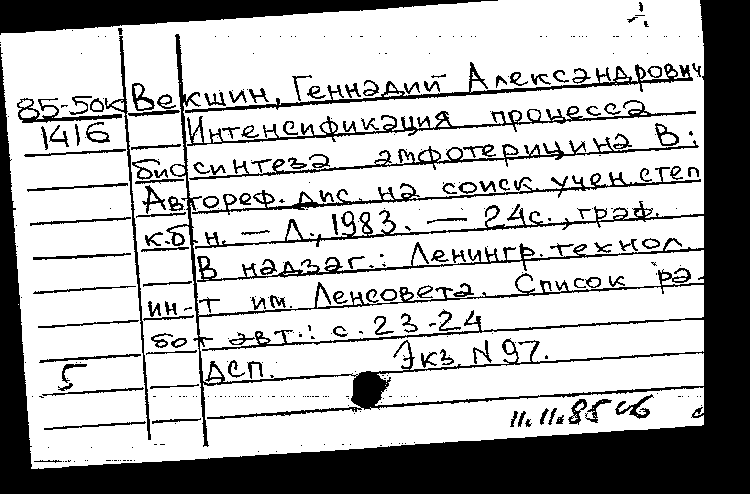 85-50к Векшин, Геннадий Александрович.
1416 Интенсификация процесса
биосинтеза амфотерицина В:
Автореф. дис. на соиск. учен. степ
к.б.н. — Л., 1983. — 24с., граф.
В надзаг.: Ленингр. технол.
ин-т им. Ленсовета. Список ра-
бот авт.: с. 23-24
5 ДСП. Экз. N 97.
11.11.85